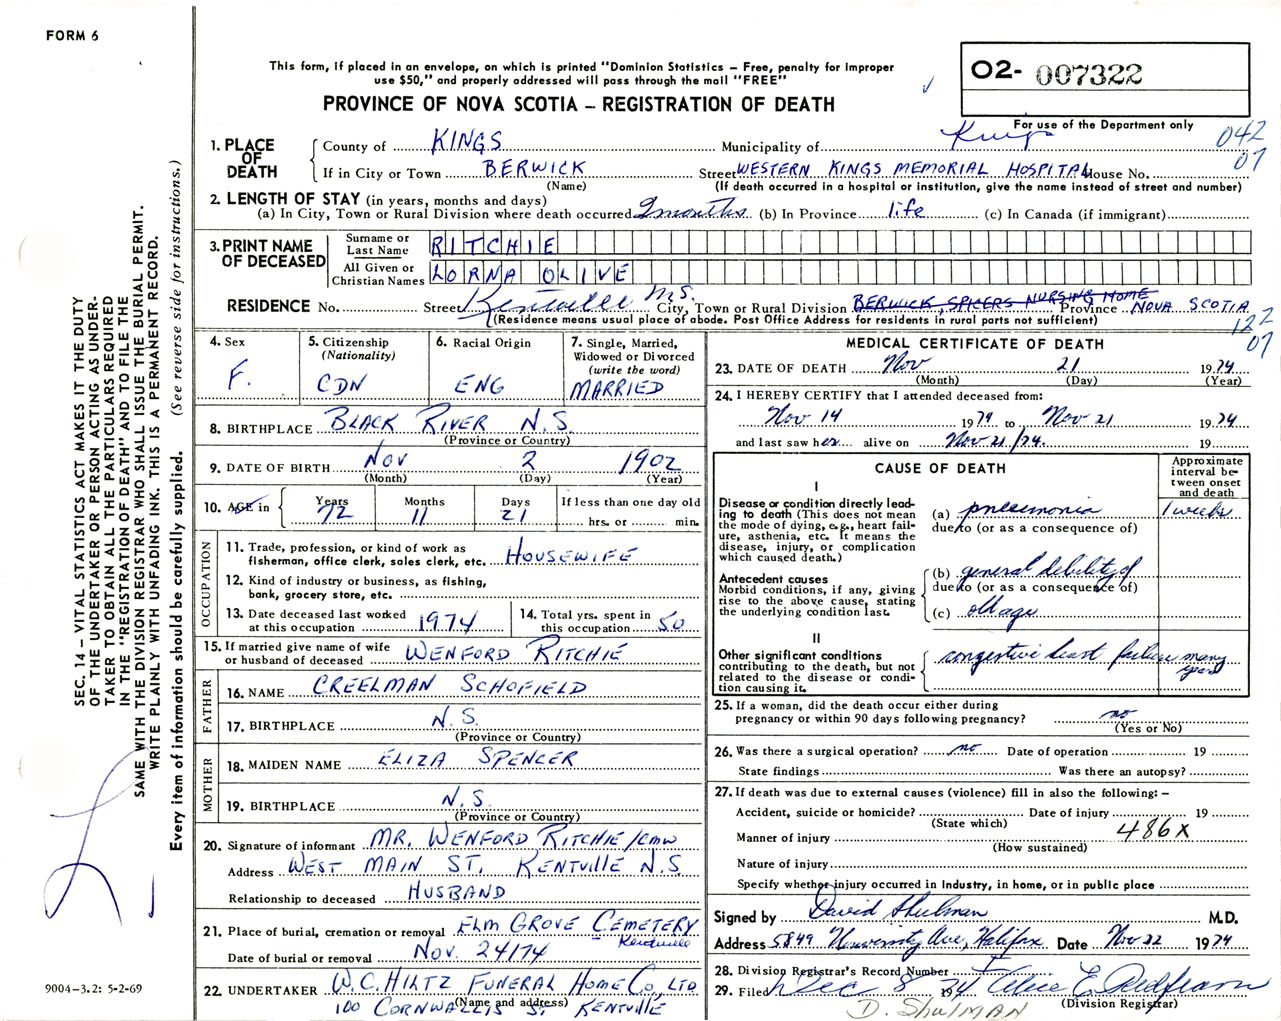 FORM 6
This form, if placed in an envelope, on which is printed "Dominion Statistics – Free, penalty for improper
use $50," and properly addressed will pass through the mail "FREE"
O2- 007322
PROVINCE OF NOVA SCOTIA – REGISTRATION OF DEATH
For use of the Department only
042
07
1. PLACE OF DEATH
County of KINGS Municipality of Kings
If in City or Town BERWICK Street WESTERN KINGS MEMORIAL HOSPITAL House No.
(Name) (If death occurred in a hospital or institution, give the name instead of street and number)
2. LENGTH OF STAY (in years, months and days)
(a) In City, Town or Rural Division where death occurred 2 months (b) In Province life (c) In Canada (if immigrant)
3. PRINT NAME OF DECEASED
Surname or Last Name RITCHIE
All Given or Christian Names LORNA OLIVE
RESIDENCE No. Street Kentville N.S. City, Town or Rural Division BERWICK, SPICERS NURSING HOME Province NOVA SCOTIA
(Residence means usual place of abode. Post Office Address for residents in rural parts not sufficient)
122
07
4. Sex F.
5. Citizenship (Nationality) CDN
6. Racial Origin ENG
7. Single, Married, Widowed or Divorced (write the word) MARRIED
8. BIRTHPLACE BLACK RIVER N.S.
(Province or Country)
9. DATE OF BIRTH NOV 2 1902
(Month) (Day) (Year)
10. AGE in Years 72 Months 11 Days 21 If less than one day old hrs. or min.
OCCUPATION
11. Trade, profession, or kind of work as
fisherman, office clerk, sales clerk, etc. HOUSEWIFE
12. Kind of industry or business, as fishing,
bank, grocery store, etc.
13. Date deceased last worked
at this occupation 1974
14. Total yrs. spent in
this occupation 50
15. If married give name of wife
or husband of deceased WENFORD RITCHIE
FATHER
16. NAME CREELMAN SCHOFIELD
17. BIRTHPLACE N.S.
(Province or Country)
MOTHER
18. MAIDEN NAME ELIZA SPENCER
19. BIRTHPLACE N.S.
(Province or Country)
20. Signature of informant MR. WENFORD RITCHIE/CMW
Address WEST MAIN ST. KENTVILLE N.S.
Relationship to deceased HUSBAND
21. Place of burial, cremation or removal ELM GROVE CEMETERY
Kentville
Date of burial or removal NOV. 24/74
22. UNDERTAKER W.C. HILTZ FUNERAL HOME CO., LTD
(Name and address)
100 CORNWALLIS ST. KENTVILLE
MEDICAL CERTIFICATE OF DEATH
23. DATE OF DEATH Nov 21 1974
(Month) (Day) (Year)
24. I HEREBY CERTIFY that I attended deceased from:
Nov 14 1974 to Nov 21 1974
and last saw her alive on Nov 21/74. 19
CAUSE OF DEATH
Approximate interval between onset and death
I
Disease or condition directly lead-
ing to death (This does not mean
the mode of dying, e.g., heart fail-
ure, asthenia, etc. It means the
disease, injury, or complication
which caused death.)
(a) pneumonia 1 week
due to (or as a consequence of)
Antecedent causes
Morbid conditions, if any, giving
rise to the above cause, stating
the underlying condition last.
(b) general debility of
due to (or as a consequence of)
(c) old age
II
Other significant conditions
contributing to the death, but not
related to the disease or condi-
tion causing it.
congestive heart failure many years
25. If a woman, did the death occur either during
pregnancy or within 90 days following pregnancy? no
(Yes or No)
26. Was there a surgical operation? no Date of operation 19
State findings Was there an autopsy?
27. If death was due to external causes (violence) fill in also the following: –
Accident, suicide or homicide? Date of injury 19
(State which)
Manner of injury 486X
(How sustained)
Nature of injury
Specify whether injury occurred in industry, in home, or in public place
Signed by David Shulman M.D.
Address 5849 University Ave, Halifax Date Nov 22 1974
28. Division Registrar's Record Number
29. Filed Dec 8 1974 Alice E. Redfearn
(Division Registrar)
D. Shulman
SEC. 14 – VITAL STATISTICS ACT MAKES IT THE DUTY
OF THE UNDERTAKER OR PERSON ACTING AS UNDER-
TAKER TO OBTAIN ALL THE PARTICULARS REQUIRED
IN THE "REGISTRATION OF DEATH" AND TO FILE THE
SAME WITH THE DIVISION REGISTRAR WHO SHALL ISSUE THE BURIAL PERMIT.
WRITE PLAINLY WITH UNFADING INK. THIS IS A PERMANENT RECORD.
Every item of information should be carefully supplied. (See reverse side for instructions.)
9004–3.2: 5-2-69